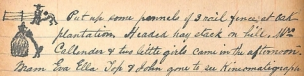 Put up some pannels of 3 rail fence at Oak
plantation. Headed hay stack on hill. Mrs
Callender & two little girls came in the afternoon.
Mam Eva Ella Top & John gone to see Kinematograph